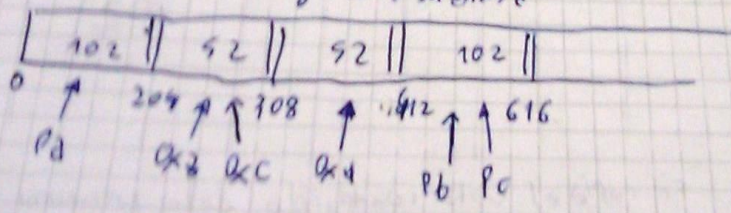 102 || 52 || 52 || 102 ||
0 204 308 412 616
Pa Qx3 QxC Qx1 Pb Pc